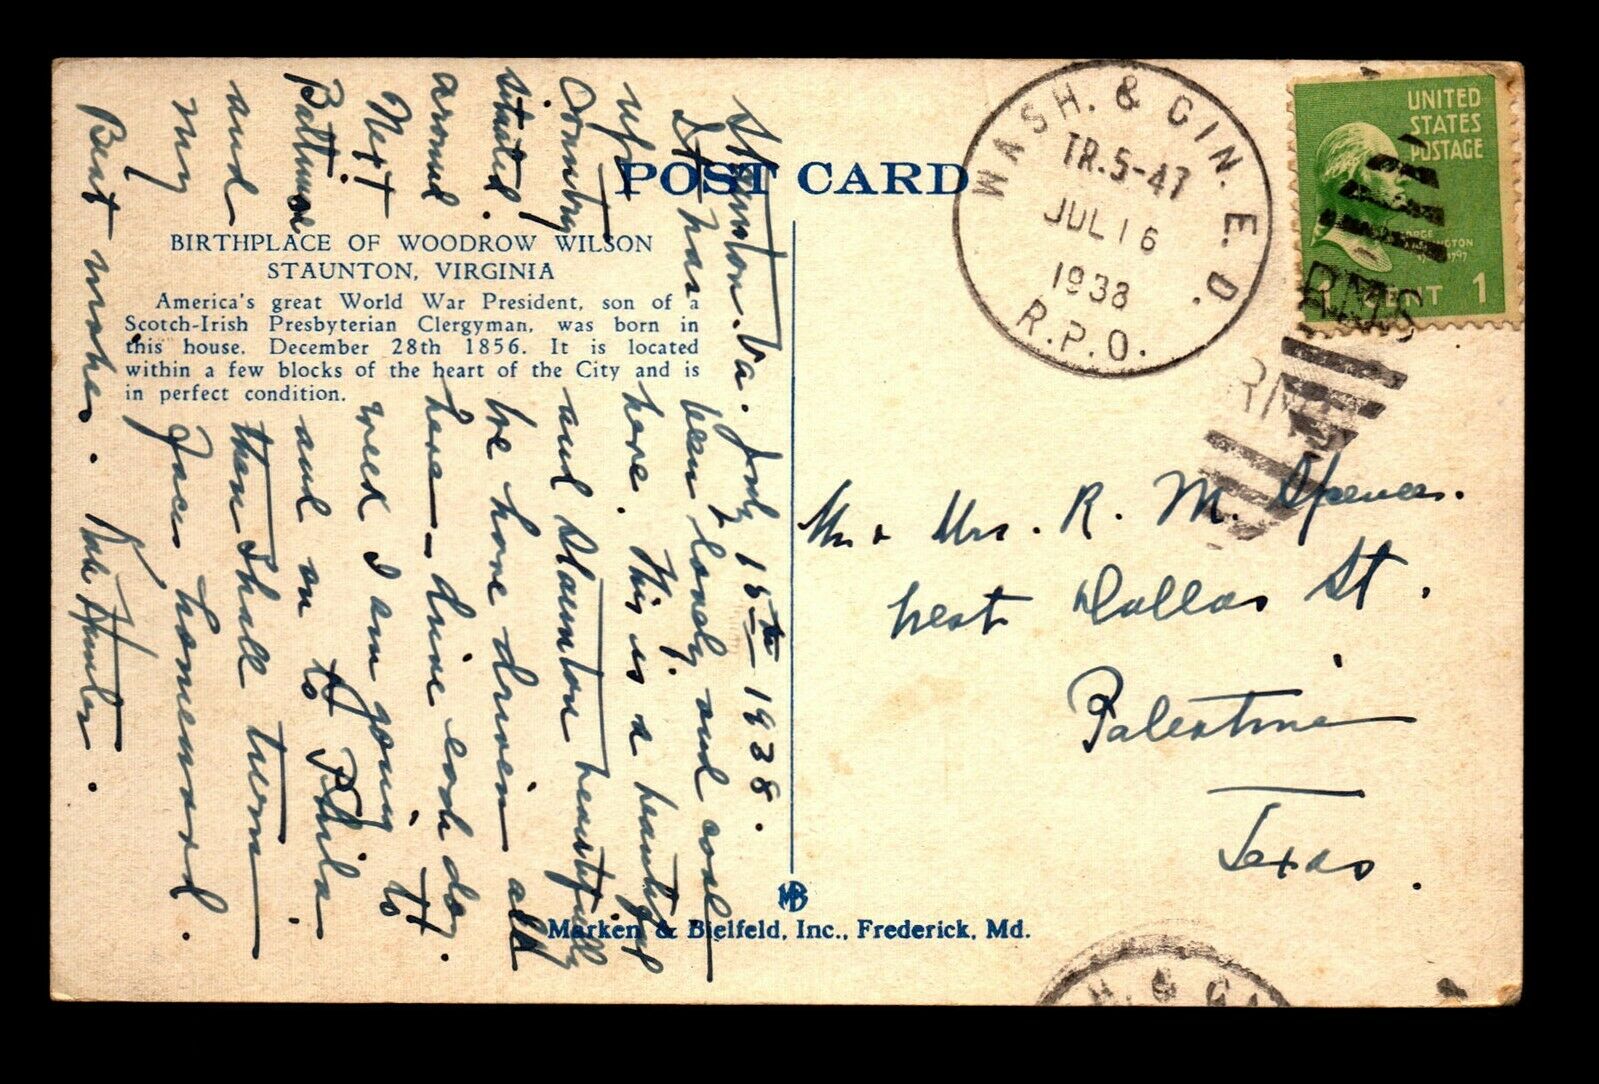 POST CARD
BIRTHPLACE OF WOODROW WILSON
STAUNTON, VIRGINIA
America's great World War President, son of a
Scotch-Irish Presbyterian Clergyman, was born in
this house. December 28th 1856. It is located
within a few blocks of the heart of the City and is
in perfect condition.
Staunton. Va. July 15th 1938.
It has been lonely and cool
up here. This is a beautiful
Country and Staunton beautifully
situated. We have driven all
around here – drive each day.
Next week I am going to
Baltimore and on to Phila.
and then shall turn
my face homeward.
Best wishes. Kate Hunter.
WASH. & GIN. E.D.
TR.5-47
JUL 16
1938
R.P.O.
UNITED
STATES
POSTAGE
GEORGE
WASHINGTON
1 CENT 1
RMS
RMS
Mr & Mrs. R. M. Spencer.
West Dallas St.
Palestine
Texas.
MB
Marken & Bielfeld, Inc., Frederick, Md.